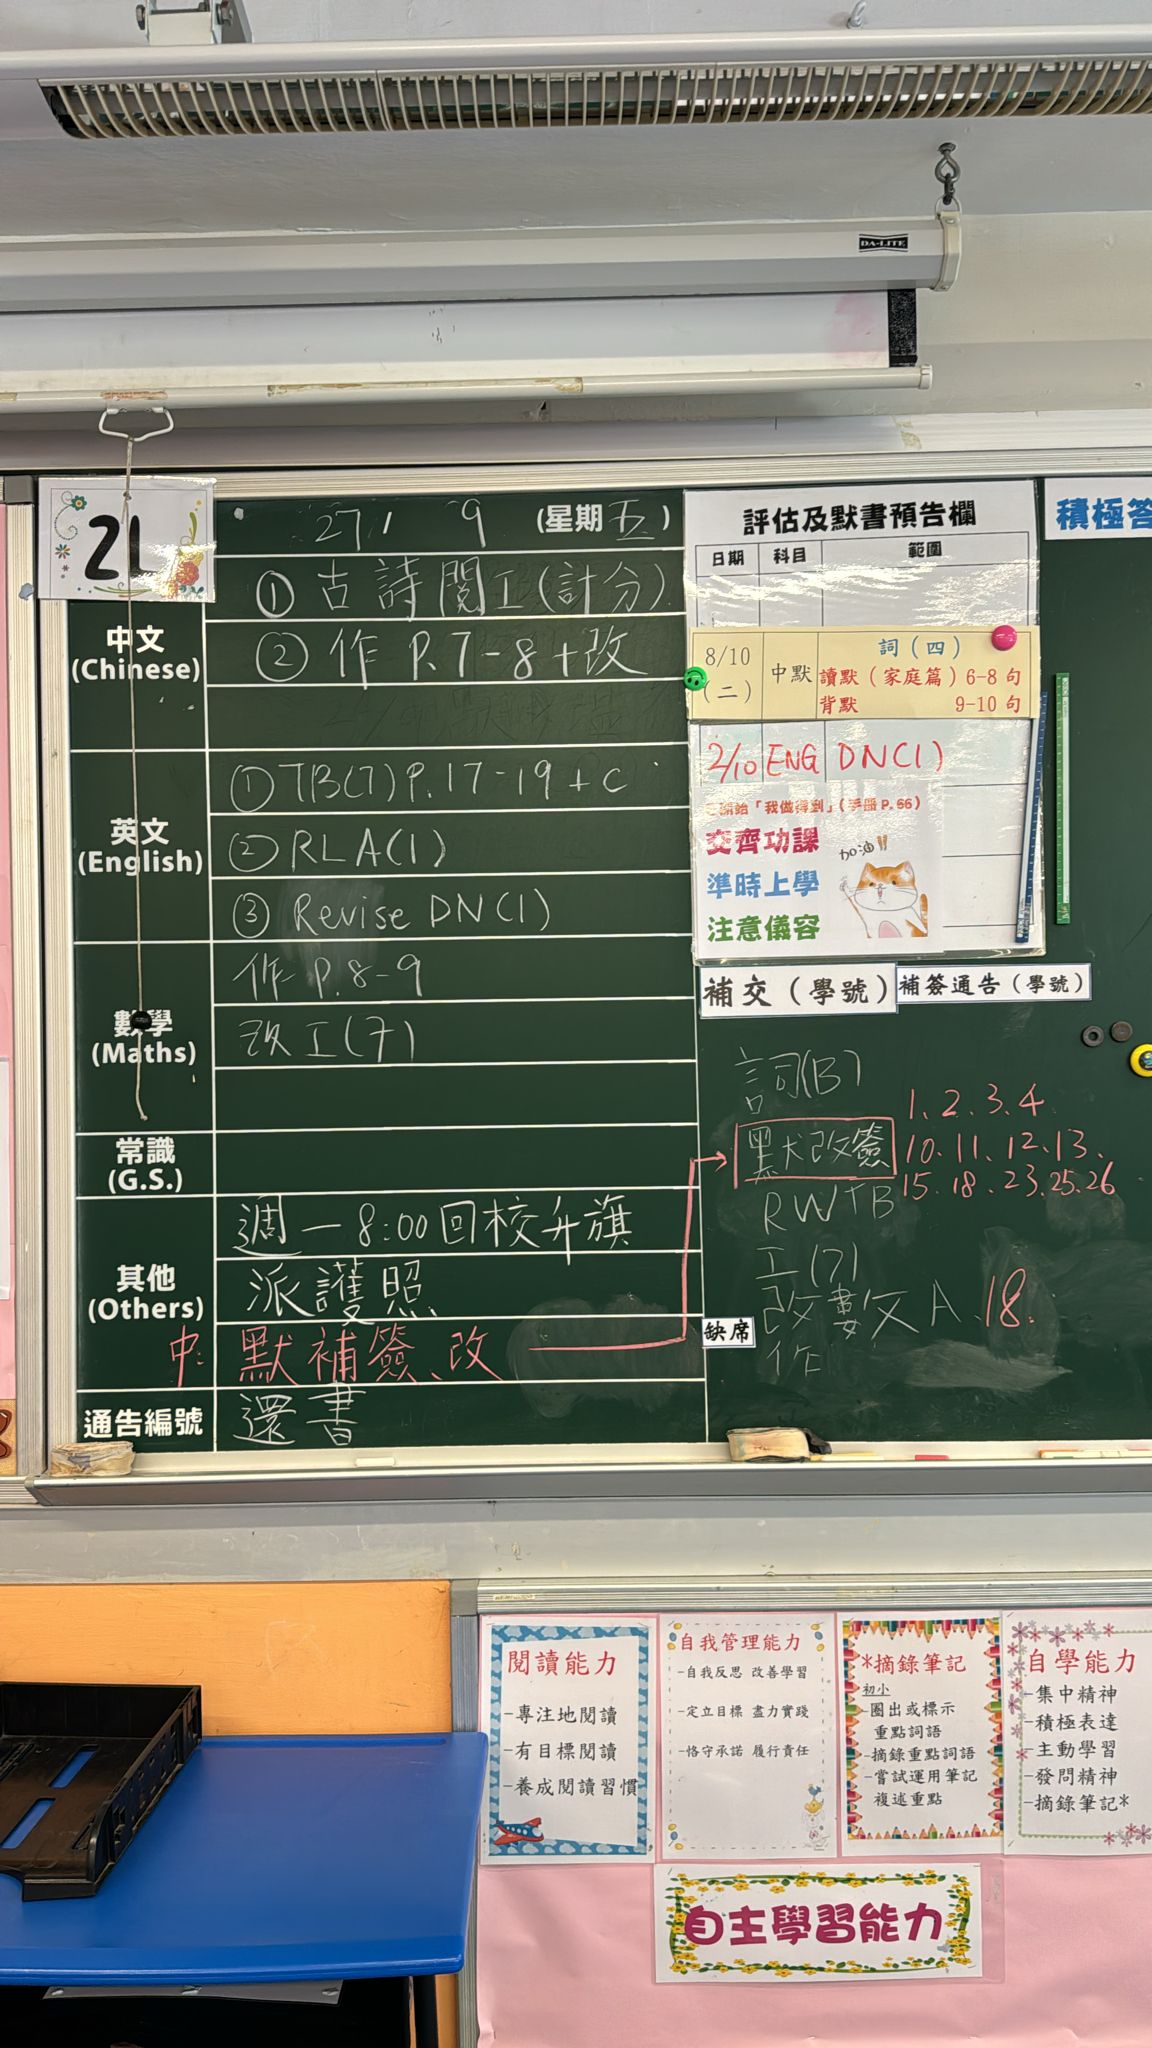 DA-LITE
2L
27/ 9 (星期五)
① 古詩閱工(計分)
中文
(Chinese)
② 作 P.7-8+改
英文
(English)
① TB(7) P.17-19 + C
② RLA(1)
③ Revise DN(1)
數學
(Maths)
作 P.8-9
改工(7)
常識
(G.S.)
其他
(Others)
週一 8:00 回校升旗
派護照
中: 默補簽、改
通告編號
還書
評估及默書預告欄
日期 科目 範圍
8/10
(二)
中默
詞(四)
讀默(家庭篇)6-8 句
背默 9-10 句
2/10 ENG DN(1)
「我做得到」(手冊 P.66)
交齊功課
準時上學
注意儀容
加油!!
積極答
補交(學號)
補簽通告(學號)
詞(B)
默改簽
1、2、3、4
10、11、12、13、
15、18、23、25、26
RWTB
工(7)
改數文A、18、
作
缺席
閱讀能力
-專注地閱讀
-有目標閱讀
-養成閱讀習慣
自我管理能力
-自我反思 改善學習
-定立目標 盡力實踐
-恪守承諾 履行責任
*摘錄筆記
初小
-圈出或標示
重點詞語
-摘錄重點詞語
-嘗試運用筆記
複述重點
自學能力
-集中精神
-積極表達
-主動學習
-發問精神
-摘錄筆記*
自主學習能力